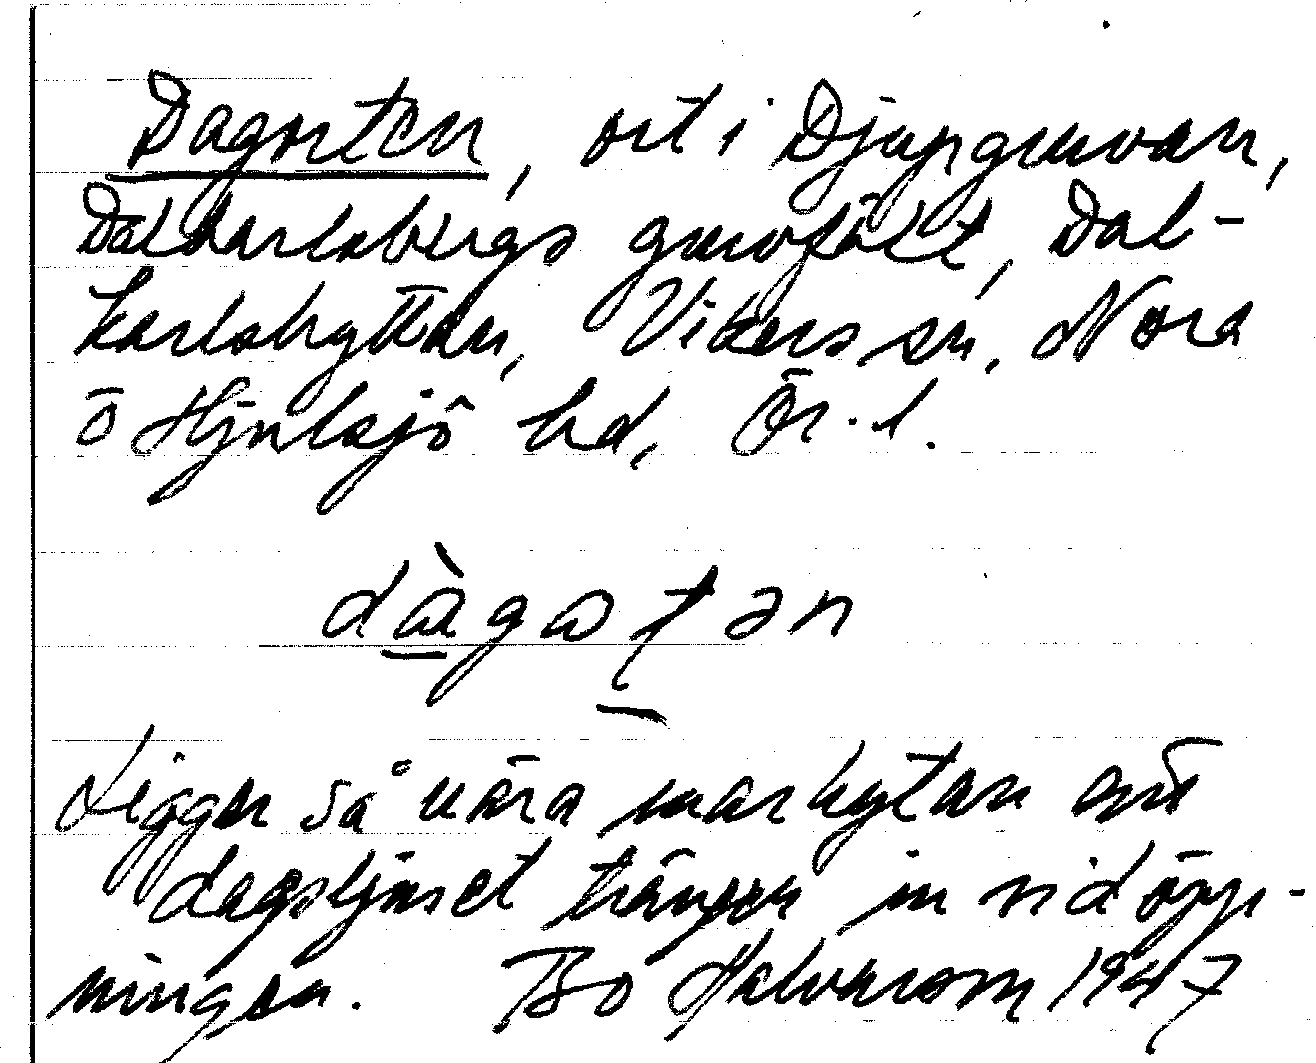 Dagorten, ort i Djupgruvan,
Dalkarlsbergs gruvfält, Dal-
karlshyttan, Vikers sn, Nora
o Hjulsjö hd, Ör. l.
dàgaʈən
Ligger så nära markytan att
dagsljuset tränger in vid öpp-
ningen. Bo Halvarson 1947